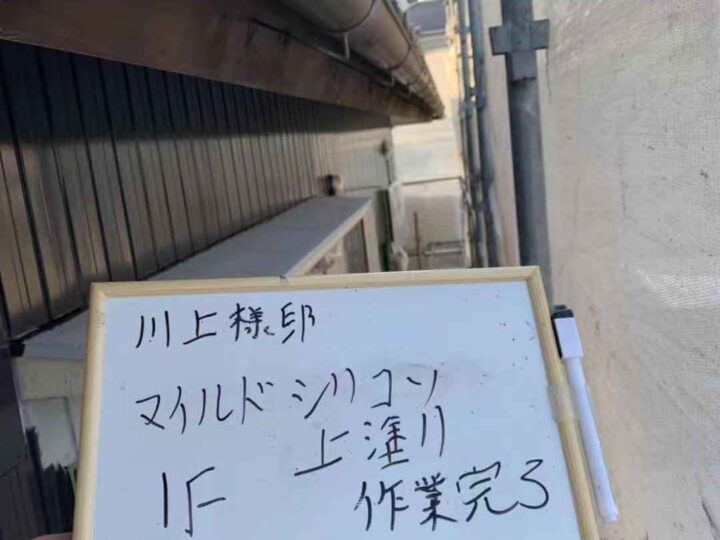 川上様邸
マイルドシリコン
上塗り
1F
作業完了